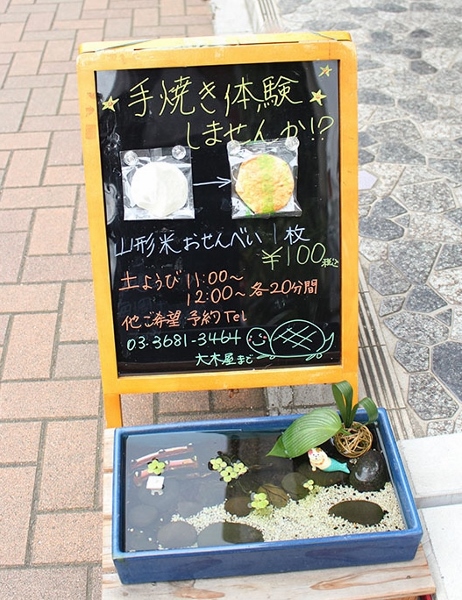 手焼き体験
しませんか!?
山形米おせんべい1枚
¥100税込
土ようび 11:00〜
12:00〜 各20分間
他ご希望 予約Tel
03-3681-3464
大木屋まで